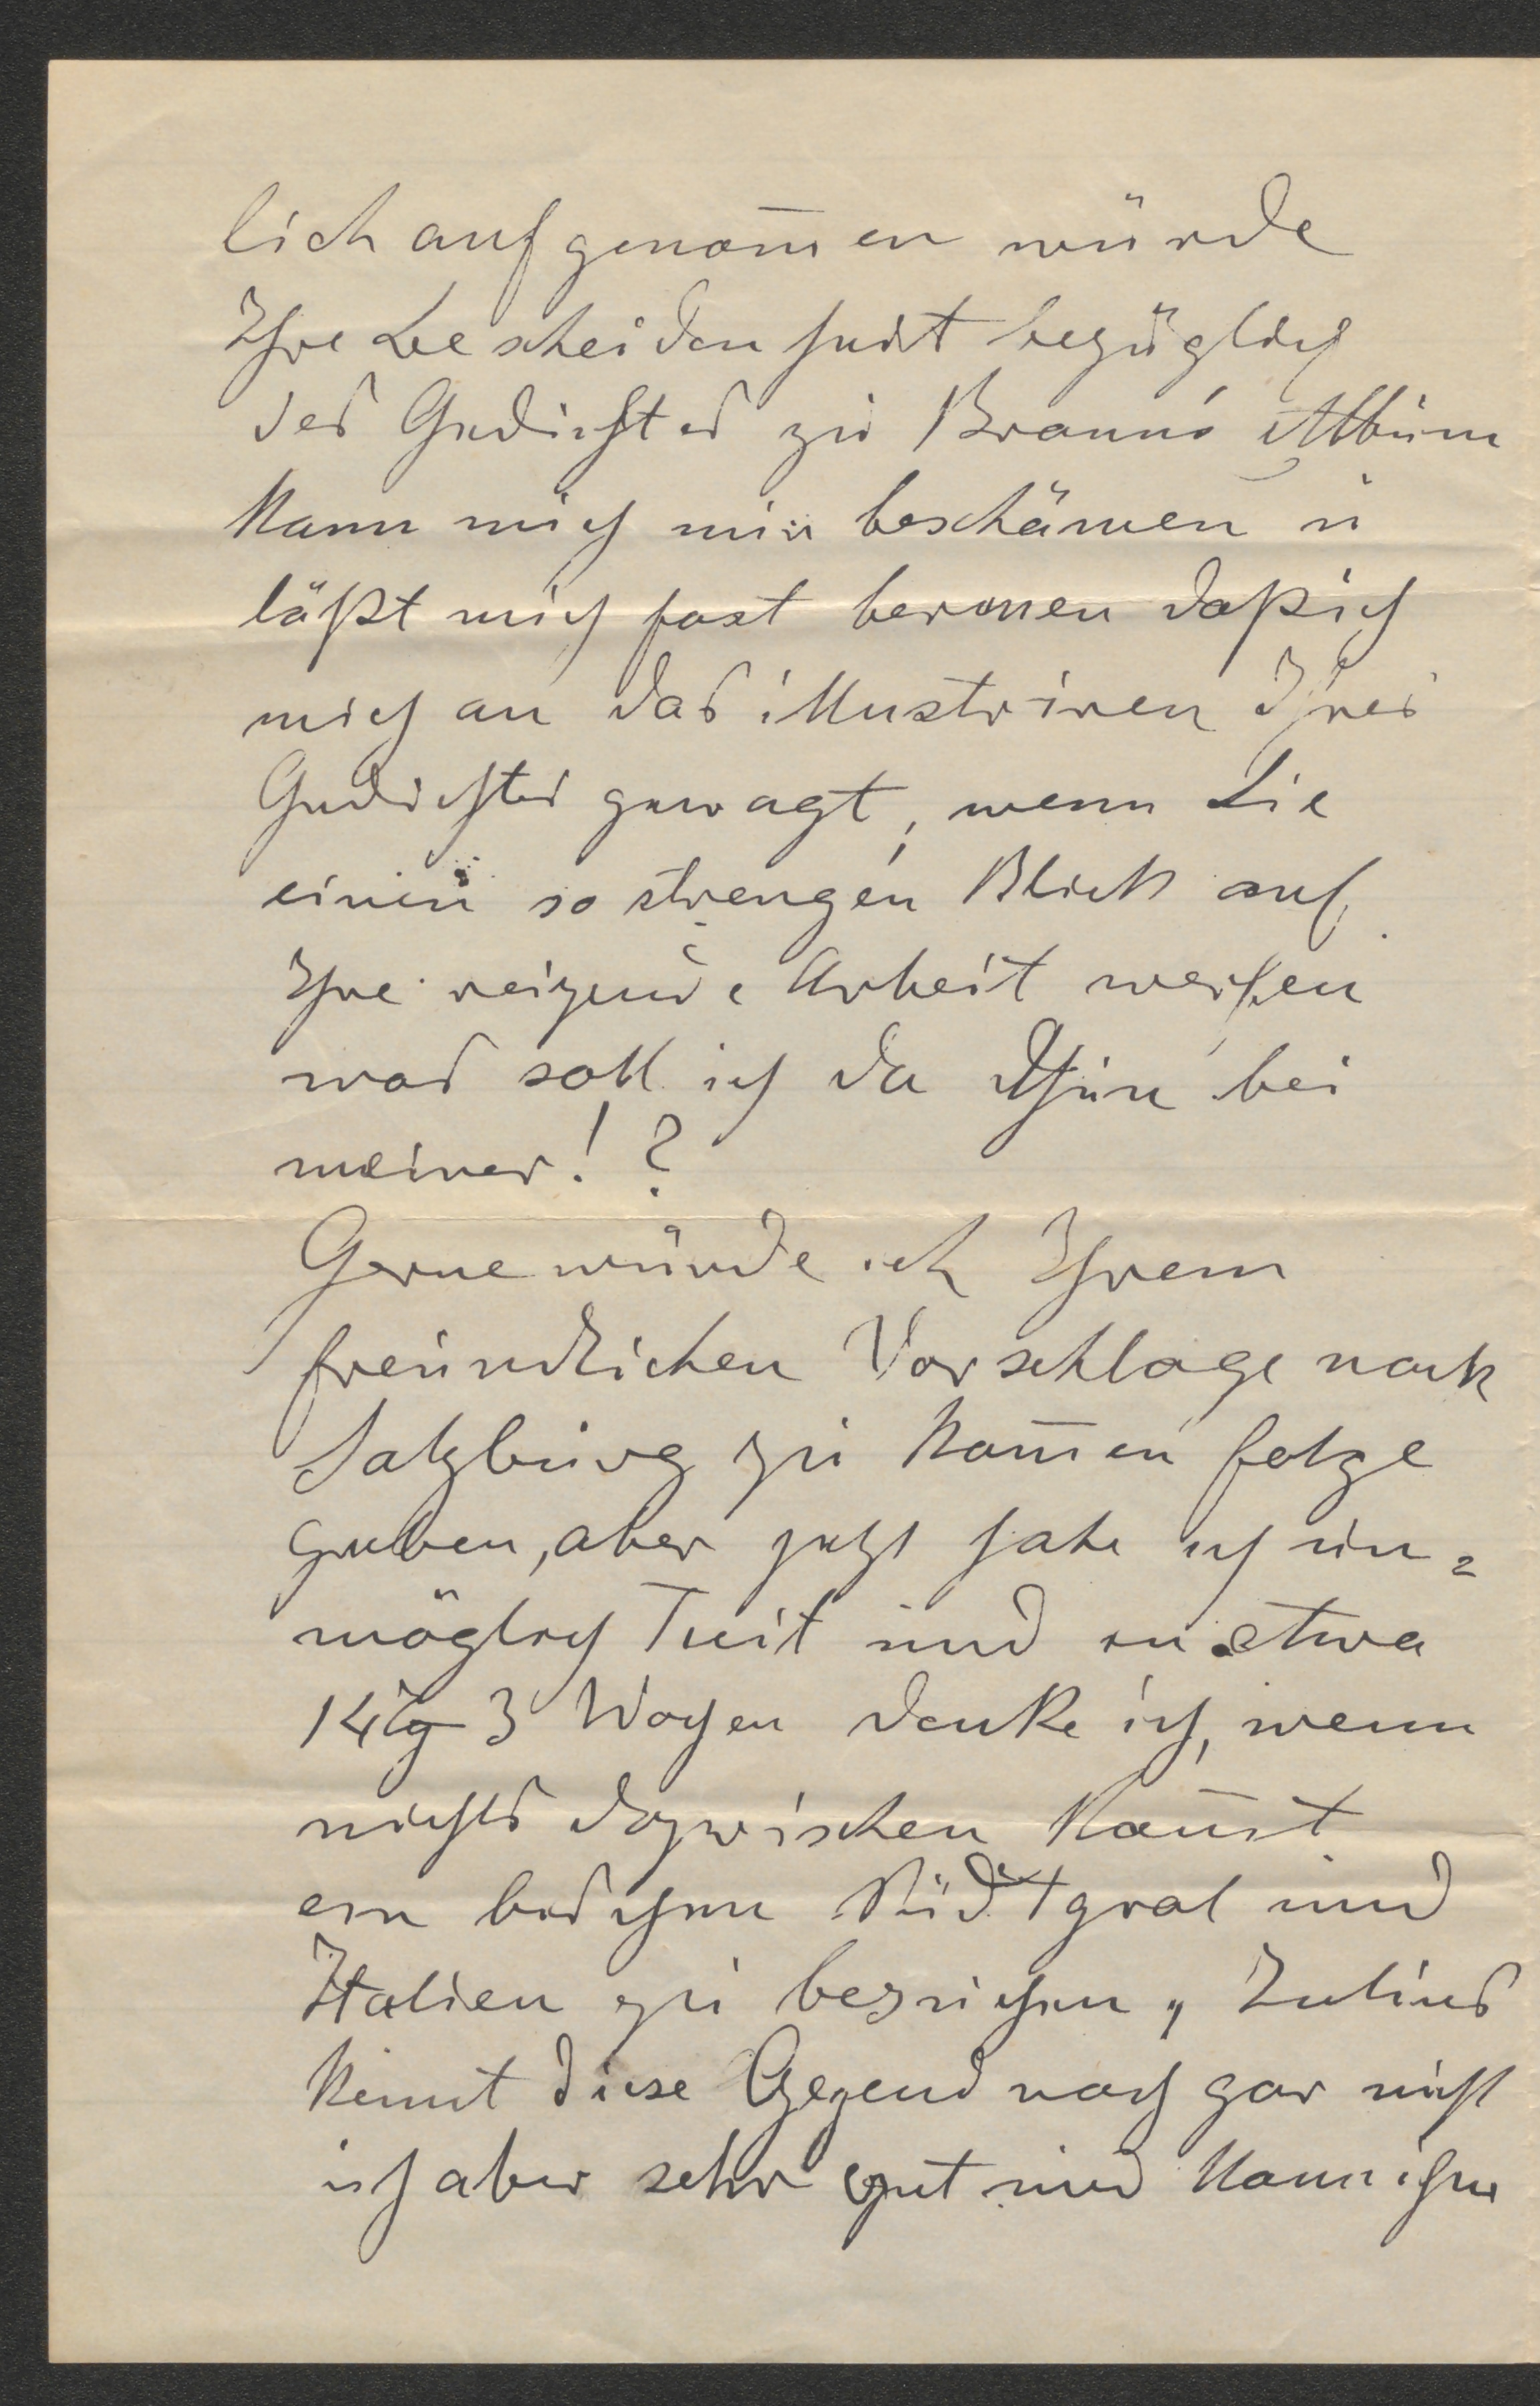 lich aufgenom̄en würde
Ihre Bescheidenheit bezüglich
des Gedichtes zu Braun's Album
kann mich nur beschämen u
läßt mich fast bereuen daß ich
mich an das illustriren Ihres
Gedichtes gewagt, wenn Sie
einen so strengen Blick auf
Ihre reizende Arbeit werfen
was soll ich da thun bei
meiner!?
Gerne würde ich Ihrem
freundlichen Vorschlage nach
Salzburg zu kom̄en folge
geben, aber jetzt habe ich un=
möglich Zeit und in etwa
14 tg 3 Wochen denke ich, wenn
nichts dazwischen kom̄t
ein bischen Südtyrol und
Italien zu besuchen, Julius
kennt diese Gegend noch gar nicht
ich aber sehr gut und kann ihm